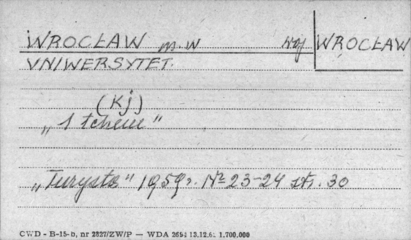 WROCŁAW m. W woj WROCŁAW
UNIWERSYTET.
(Kj)
„1 tchem"
„Turysta" 1959r. № 23-24 str. 30
CWD - B-15-b, nr 2827/ZW/P — WDA 3651 13.12.61 1.700.000